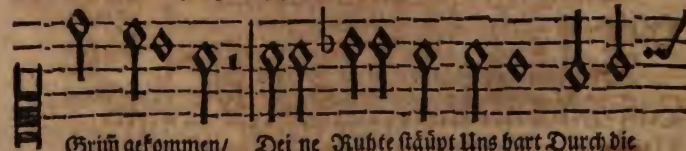 Grim̃ gekommen/ Dei ne Ruhte ſtäupt Uns hart Durch die